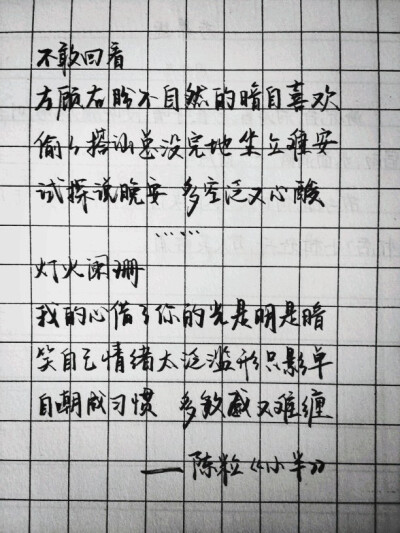 不敢回看
左顾右盼不自然的暗自喜欢
偷々搭讪总没完地坐立难安
试探说晚安 多空泛又心酸
……
灯火阑珊
我的心借了你的光是明是暗
笑自己情绪太泛滥形只影单
自嘲成习惯 多敏感又难缠
——陈粒《小半》